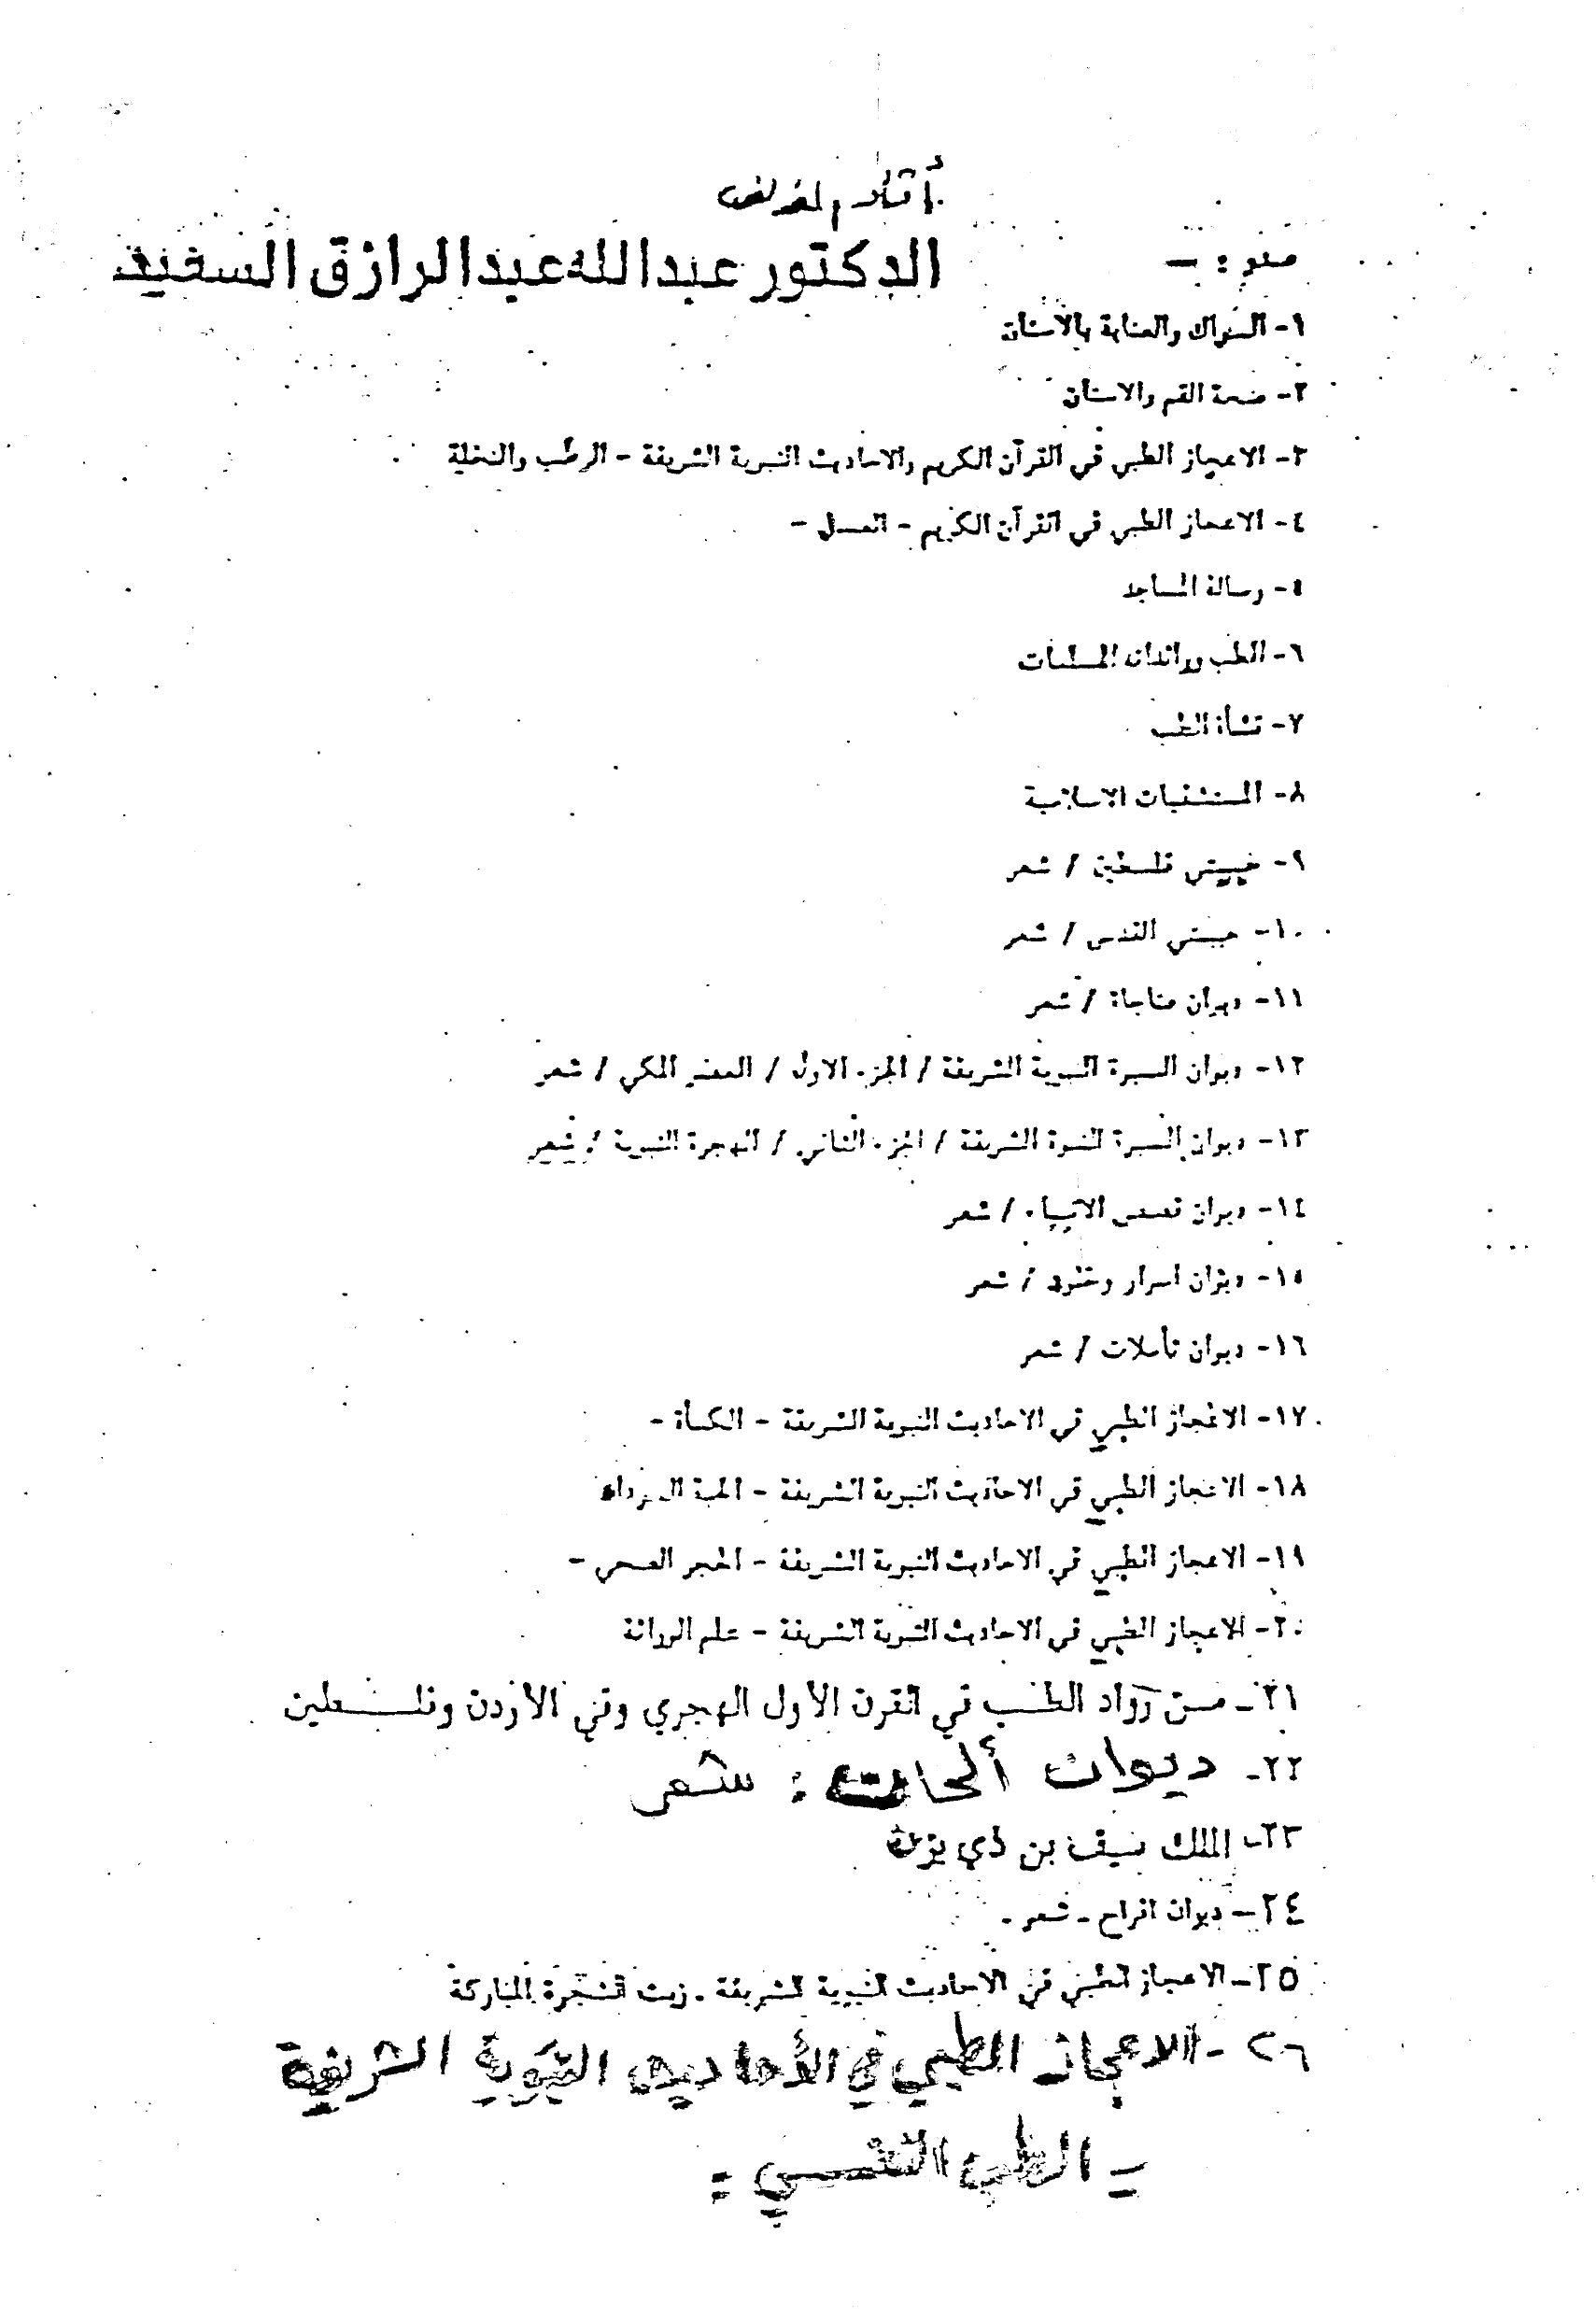 الدكتور عبدالله عبدالرازق السعيد
١- السواك والعناية بالأسنان
٢- صحة الفم والاسنان
٣- الاعجاز الطبي في القرآن الكريم والاحاديث النبوية الشريفة - الرطب والنخلة
٤- الاعجاز الطبي في القرآن الكريم - العسل -
٥- رسالة المساجد
٦- الطب ورائداته المسلمات
٧- نشأة الطب
٨- المستشفيات الاسلامية
٩- حبيبتي فلسطين / شعر
١٠- حبيبتي القدس / شعر
١١- ديوان مناجاة / شعر
١٢- ديوان السيرة النبوية الشريفة / الجزء الاول / العصر المكي / شعر
١٣- ديوان السيرة النبوة الشريفة / الجزء الثاني / الهجرة النبوية / شعر
١٤- ديوان قصص الانبياء / شعر
١٥- ديوان اسرار / شعر
١٦- ديوان تأملات / شعر
١٧- الاعجاز الطبي في الاحاديث النبوية الشريفة - الكمأة -
١٨- الاعجاز الطبي في الاحاديث النبوية الشريفة - الحبة السوداء
١٩- الاعجاز الطبي في الاحاديث النبوية الشريفة - الحجر الصحي -
٢٠- الاعجاز الطبي في الاحاديث النبوية الشريفة - علم الوراثة
٢١- من رواد الطب في القرن الأول الهجري وفي الأردن وفلسطين
٢٢- ديوان ألحان : شعر
٢٣- الملك سيف بن ذي يزن
٢٤- ديوان افراح - شعر -
٢٥- الاعجاز الطبي في الاحاديث النبوية الشريفة - زيت الشجرة المباركة
٢٦- الاعجاز الطبي في الأحاديث النبوية الشريفة
- الطب النفسي -